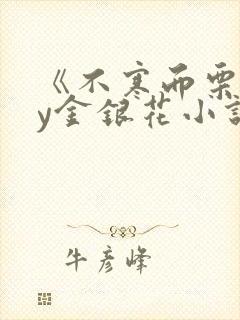 《不寒而栗
y金银花小说
牛彦峰